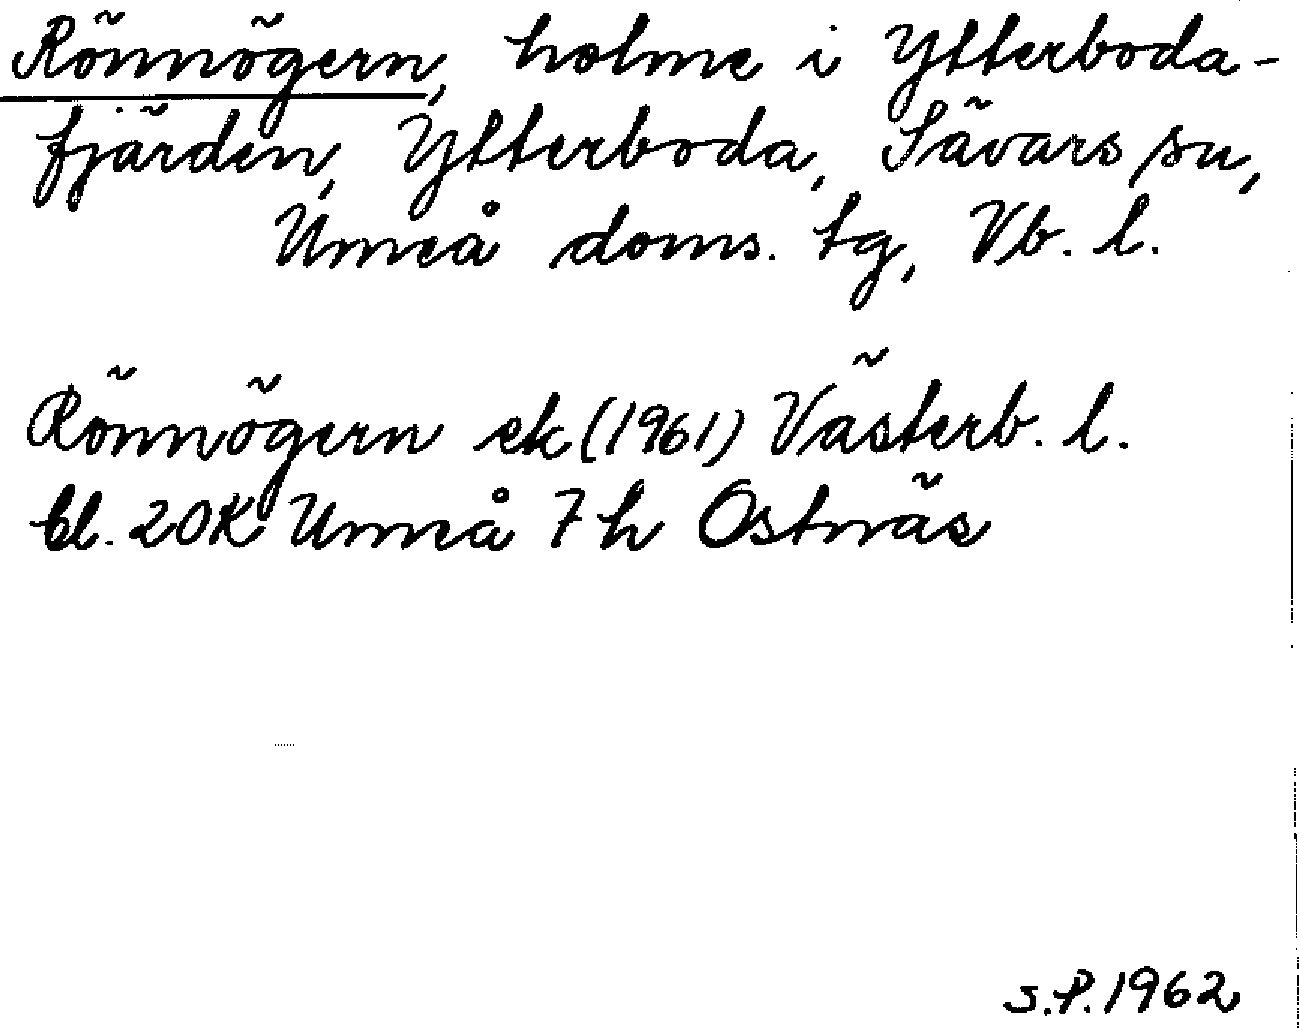 Rönnögern, holme i Ytterboda-
fjärden, Ytterboda, Sävars sn,
Umeå doms. tg, Vb. l.
Rönnögern ek (1961) Västerb. l.
bl. 20K Umeå 7h Ostnäs
S.P. 1962